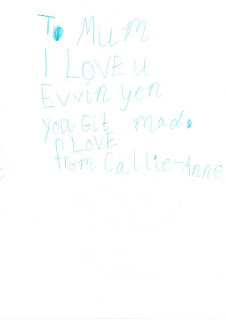 To Mum
I LOVE u
Evvin yen
you Git mad.
LOVE
from Callie-Anne